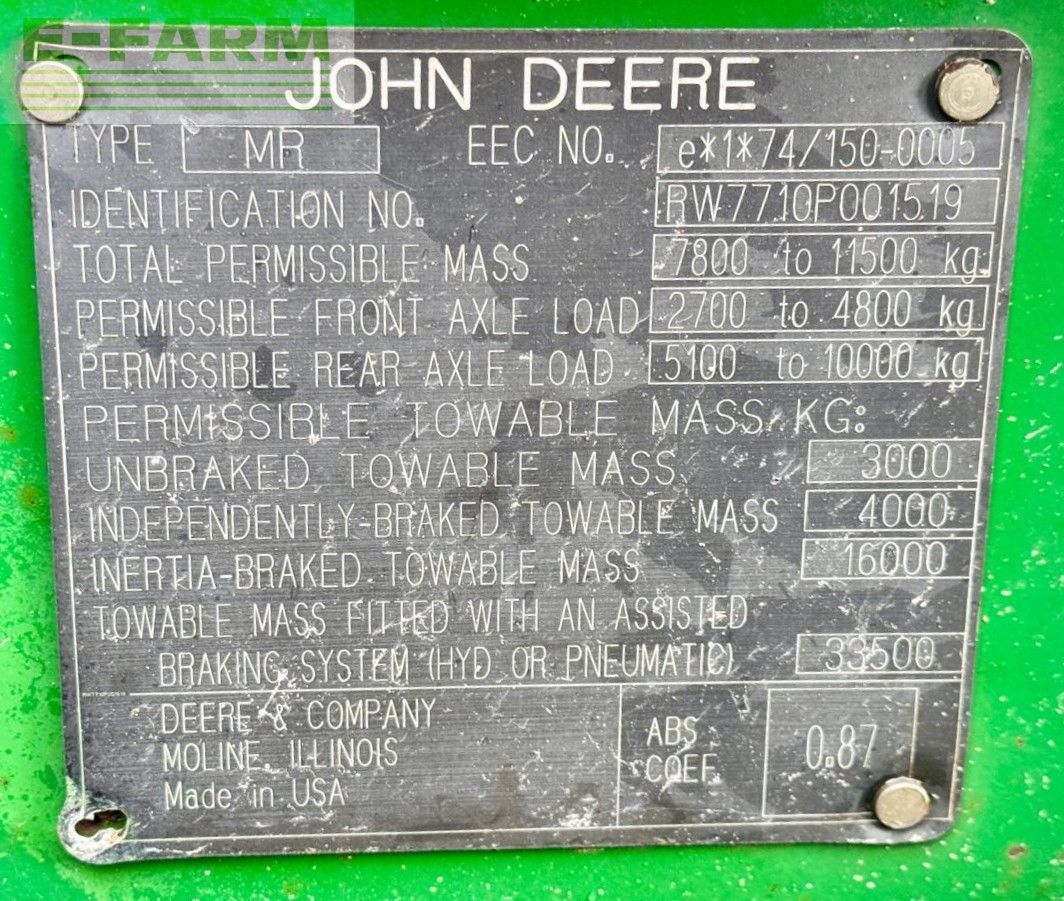 E-FARM
JOHN DEERE
TYPE MR EEC NO. e*1*74/150-0005
IDENTIFICATION NO. RW7710P001519
TOTAL PERMISSIBLE MASS 7800 to 11500 kg
PERMISSIBLE FRONT AXLE LOAD 2700 to 4800 kg
PERMISSIBLE REAR AXLE LOAD 5100 to 10000 kg
PERMISSIBLE TOWABLE MASS KG:
UNBRAKED TOWABLE MASS 3000
INDEPENDENTLY-BRAKED TOWABLE MASS 4000
INERTIA-BRAKED TOWABLE MASS 16000
TOWABLE MASS FITTED WITH AN ASSISTED
BRAKING SYSTEM (HYD OR PNEUMATIC) 33500
DEERE & COMPANY
MOLINE, ILLINOIS
Made in USA
ABS
COEF.
0.87